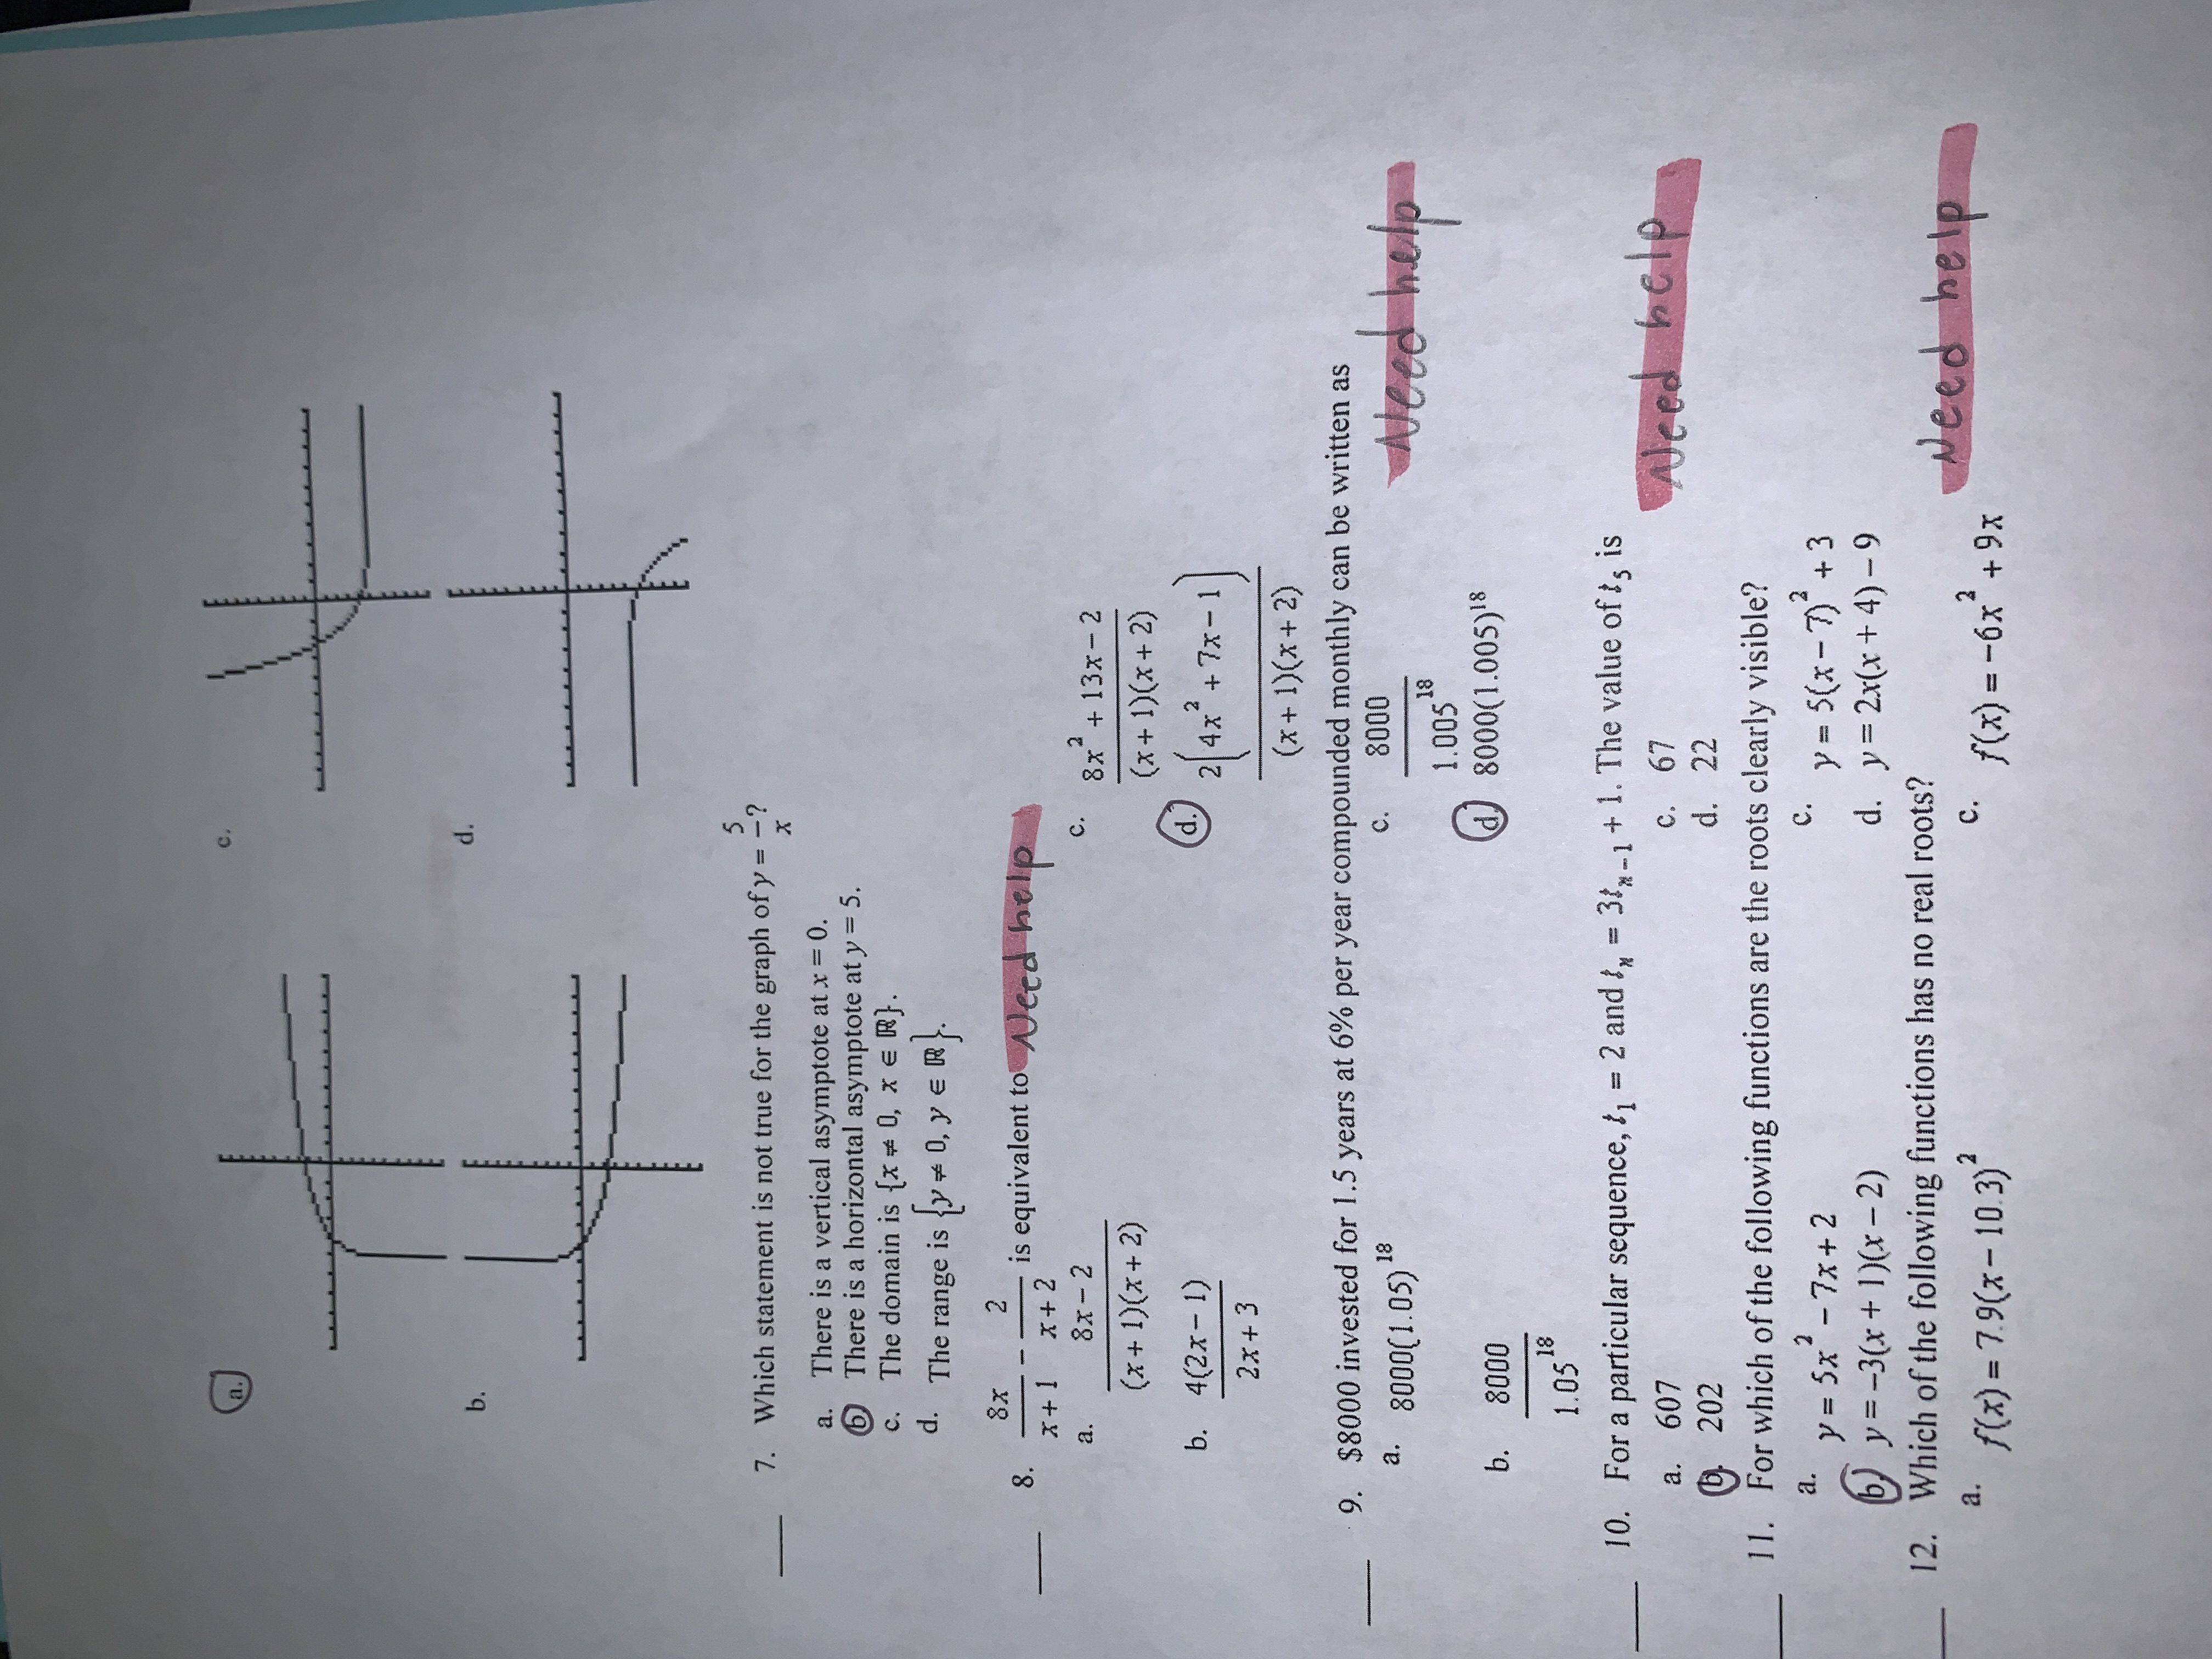 a.
c.
b.
d.
7. Which statement is not true for the graph of y = 5/x?
a. There is a vertical asymptote at x = 0.
b. There is a horizontal asymptote at y = 5.
c. The domain is {x ≠ 0, x ∈ ℝ}.
d. The range is {y ≠ 0, y ∈ ℝ}.
8. 8x/(x + 1) − 2/(x + 2) is equivalent to Need help
a. (8x − 2)/((x + 1)(x + 2))
c. (8x² + 13x − 2)/((x + 1)(x + 2))
b. 4(2x − 1)/(2x + 3)
d. 2(4x² + 7x − 1)/((x + 1)(x + 2))
9. $8000 invested for 1.5 years at 6% per year compounded monthly can be written as
a. 8000(1.05)¹⁸
c. 8000/1.005¹⁸
Need help
b. 8000/1.05¹⁸
d. 8000(1.005)¹⁸
10. For a particular sequence, t₁ = 2 and tₙ = 3tₙ₋₁ + 1. The value of t₅ is
a. 607
c. 67
Need help
b. 202
d. 22
11. For which of the following functions are the roots clearly visible?
a. y = 5x² − 7x + 2
c. y = 5(x − 7)² + 3
b. y = −3(x + 1)(x − 2)
d. y = 2x(x + 4) − 9
12. Which of the following functions has no real roots?
Need help
a. f(x) = 7.9(x − 10.3)²
c. f(x) = −6x² + 9x